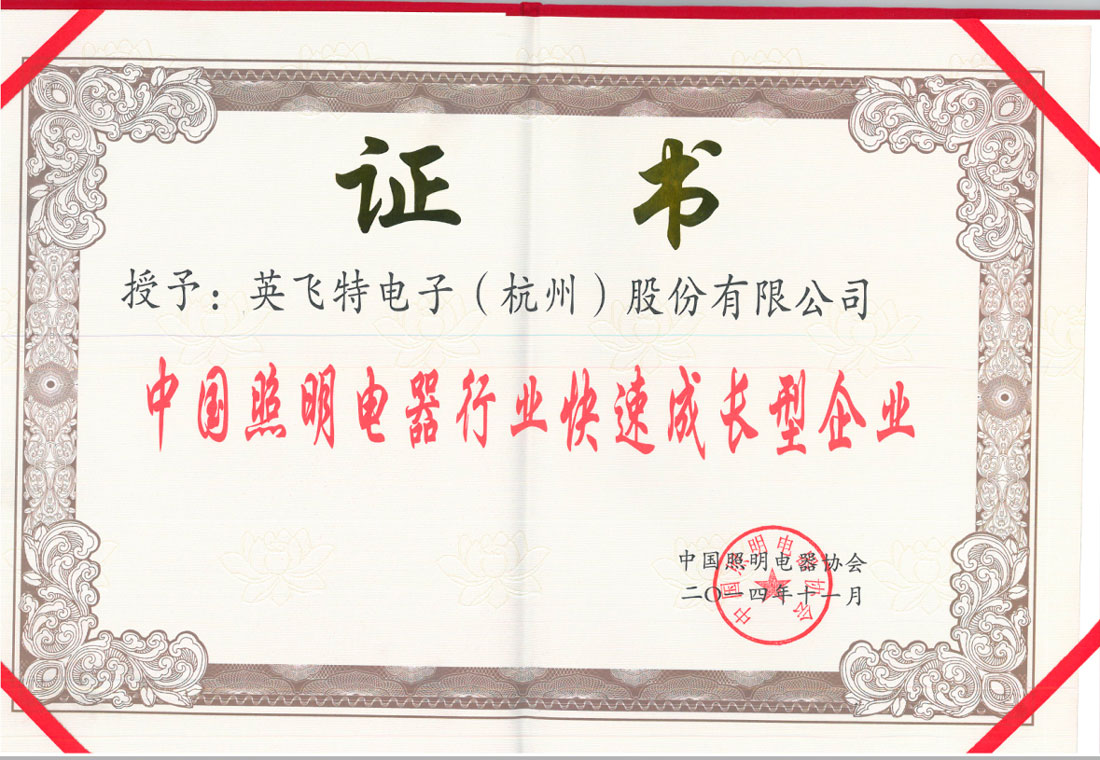 证书
授予：英飞特电子（杭州）股份有限公司
中国照明电器行业快速成长型企业
中国照明电器协会
二〇一四年十一月
中国照明电器协会